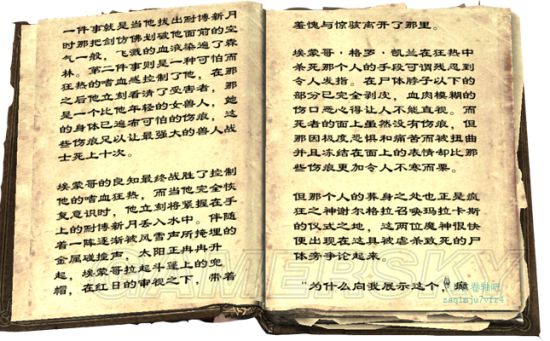 一件事就是当他拔出耐博新月
时那把剑仿佛划破他面前的空
气一般，飞溅的血液染遍了森
林。第二件事则是一种可怕而
狂热的嗜血感控制了他，在那
之后他立刻看清了受害者，那
是一个比他年轻的女兽人，她
的身体已遍布可怕的伤痕，这
些伤痕足以让最强大的兽人战
士死上十次。
埃蒙哥的良知最终战胜了控制
他的嗜血狂热，而当他完全恢
复意识时，他立刻将紧握在手
上的耐博新月丢入水中。伴随
着一阵逐渐被风雪声所掩埋的
金属碰撞声，太阳正冉冉升
起，埃蒙哥拉起斗篷上的兜
帽，在红日的审视之下，带着
羞愧与惊骇离开了那里。
埃蒙哥·格罗·凯兰在狂热中
杀死那个人的手段可谓残忍到
令人发指。在尸体脖子以下的
部分已完全剥皮，血肉模糊的
伤口恶心得让人不能直视。而
死者的面上虽然没有伤痕，但
那因极度恐惧和痛苦而被扭曲
并且冻结在面上的表情却比那
些伤痕更加令人不寒而栗。
但那个人的葬身之处也正是疯
狂之神谢尔格拉召唤玛拉卡斯
的仪式之地，这两位魔神很快
便出现在这具被虐杀致死的尸
体旁争论起来。
"为什么向我展示这个，癫
GAMERSKY